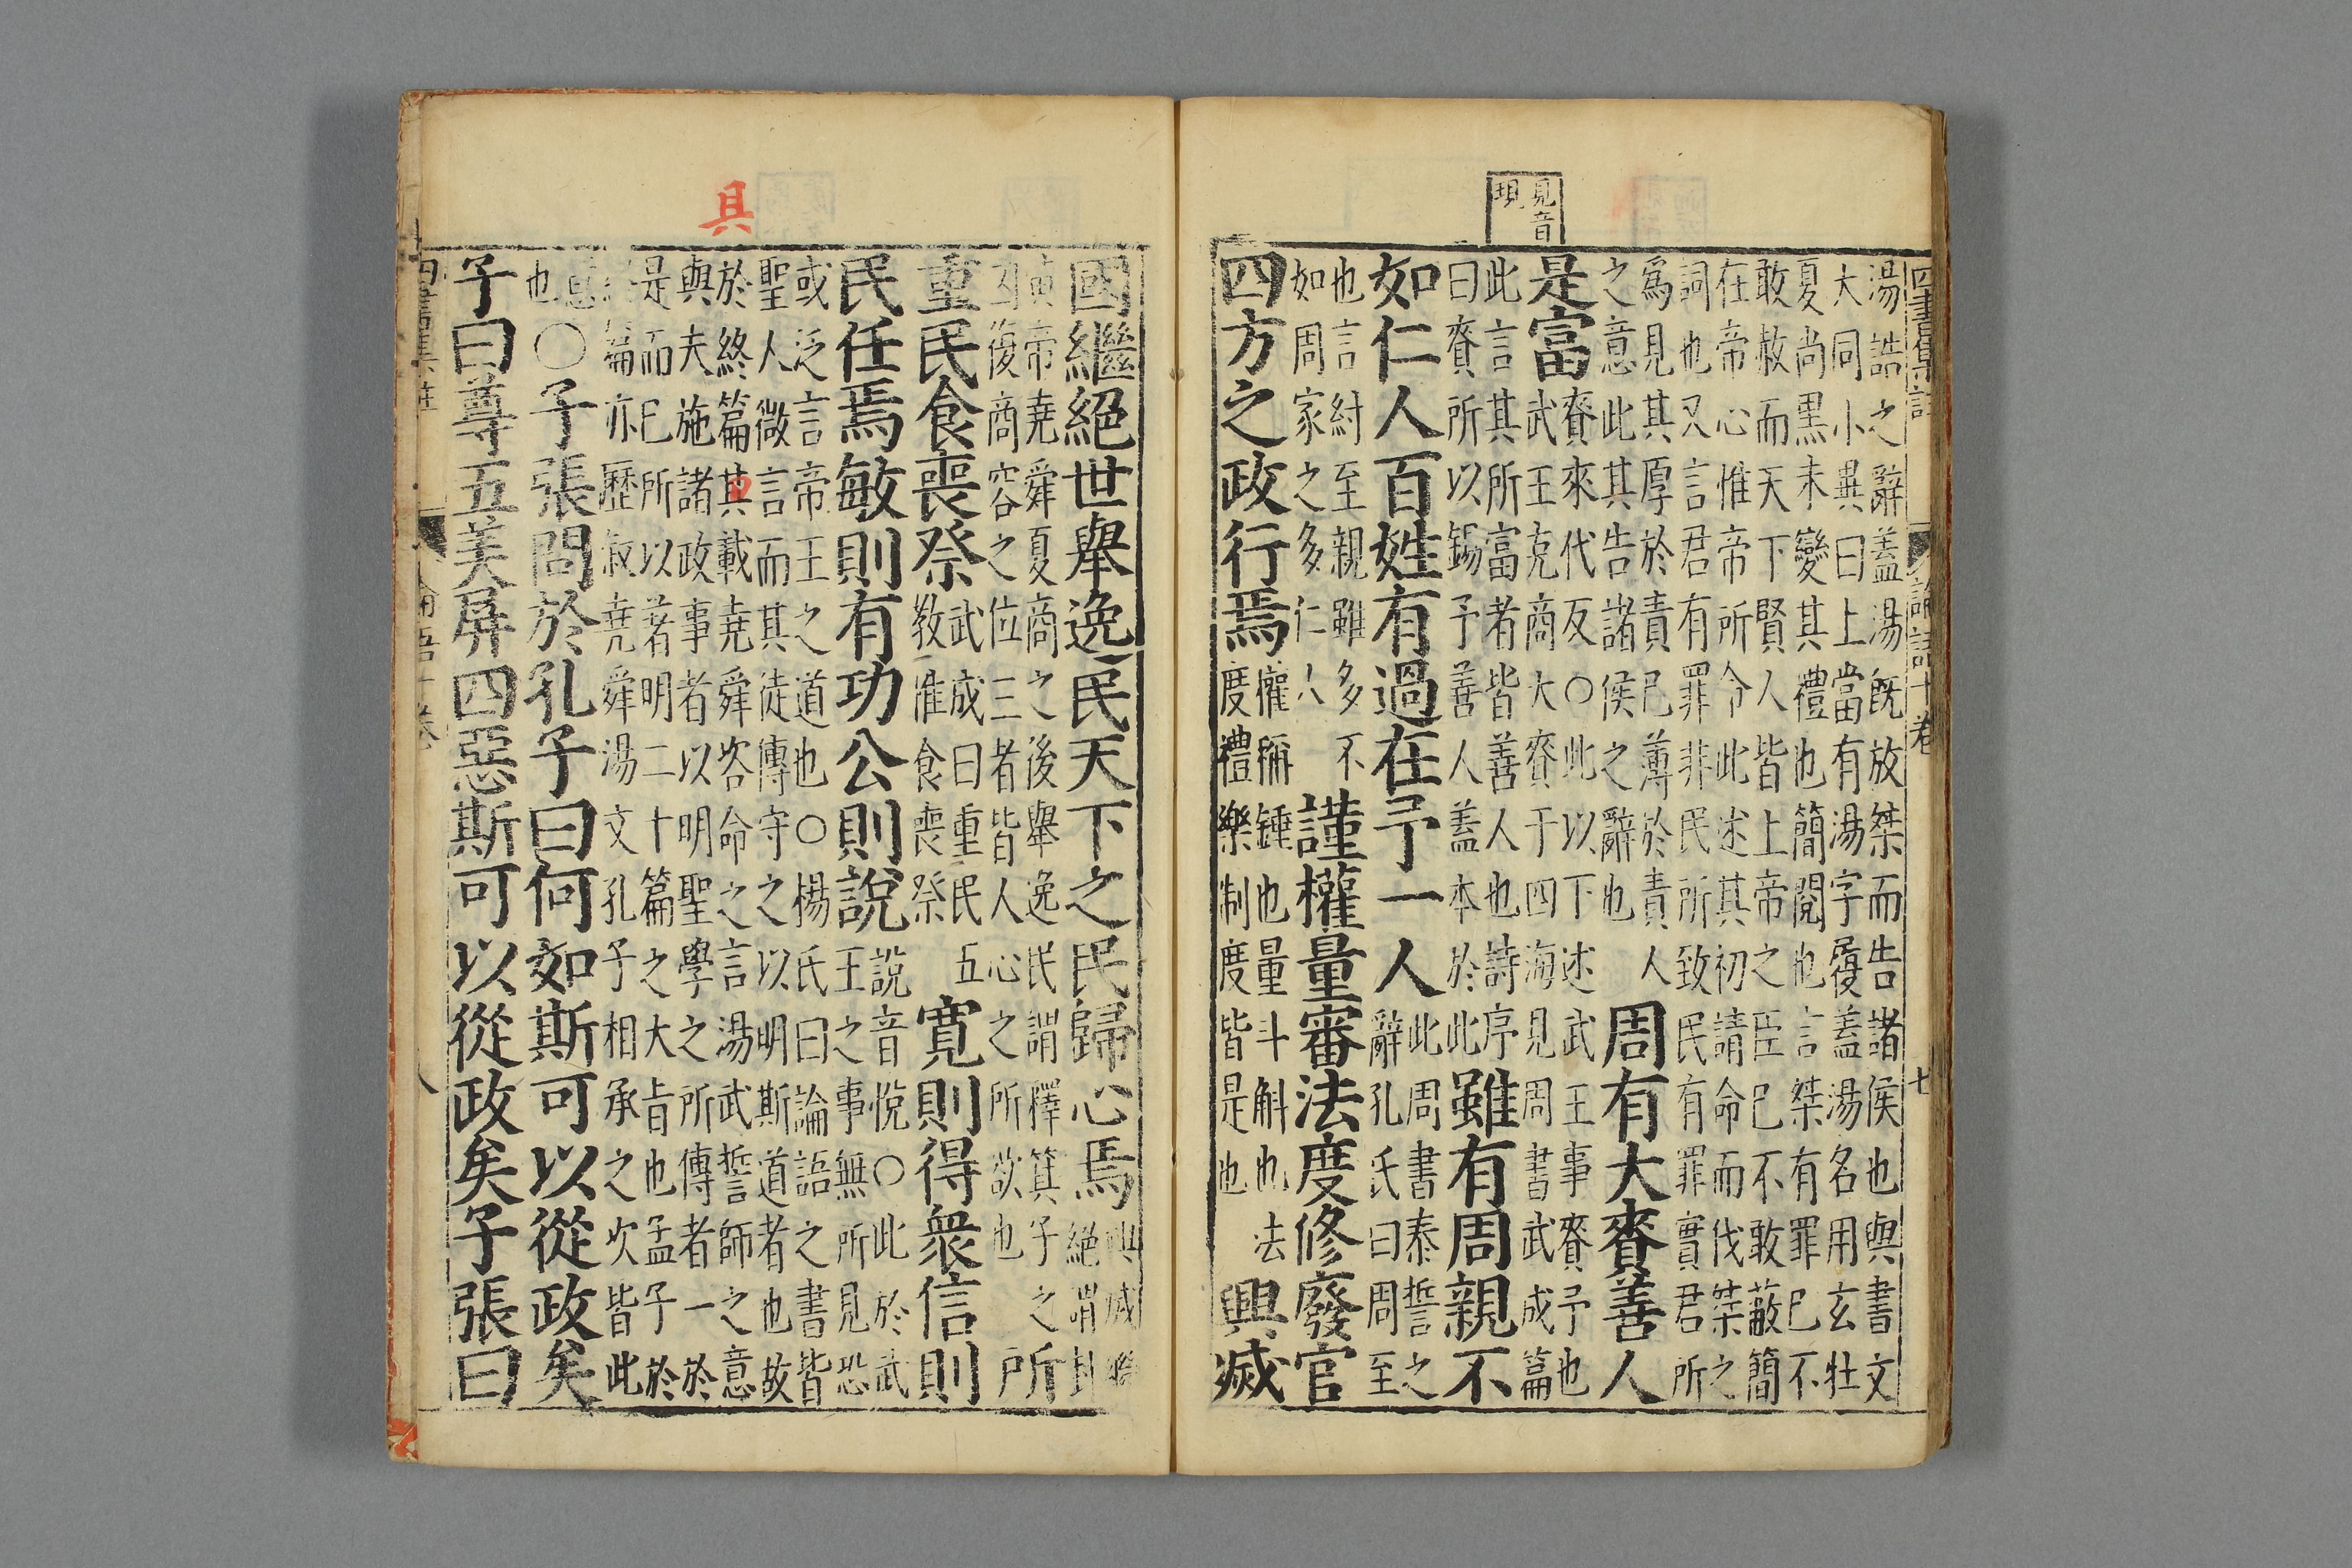 四書集註 論語十卷 七
湯誥之辭蓋湯既放桀而告諸侯也與書文
大同小異曰上當有湯字履蓋湯名用玄牡
夏尚黑未變其禮也簡閱也言桀有罪已不
敢赦而天下賢人皆上帝之臣已不敢蔽簡
在帝心惟帝所令此述其初請命而伐桀之
詞也又言君有罪非民所致民有罪實君所
爲見其厚於責己薄於責人
之意此其告諸侯之辭也
周有大賚善人
見音現
是富
賚來代反○此以下述武王事賚予也
武王克商大賚于四海見周書武成篇
此言其所富者皆善人也詩序
曰賚所以錫予善人蓋本於此
雖有周親不
如仁人百姓有過在予一人
此周書泰誓之
辭孔氏曰周至
也言紂至親雖多不
如周家之多仁人
謹權量審法度修廢官
四方之政行焉
權稱錘也量斗斛也法
度禮樂制度皆是也
興滅
國繼絕世舉逸民天下之民歸心焉
興滅繼
絕謂封
黃帝堯舜夏商之後舉逸民謂釋箕子之
囚復商容之位三者皆人心之所欲也
所
重民食喪祭
武成曰重民五
教惟食喪祭
寬則得衆信則
民任焉敏則有功公則說
說音悅○此於武
王之事無所見恐
或泛言帝王之道也○楊氏曰論語之書皆
聖人微言而其徒傳守之以明斯道者也故
具
於終篇其載堯舜咨命之言湯武誓師之意
與夫施諸政事者以明聖學之所傳者一於
是而已所以著明二十篇之大旨也孟子於
終篇亦歷叙堯舜湯文孔子相承之次皆此
意
也
○子張問於孔子曰何如斯可以從政矣
子曰尊五美屏四惡斯可以從政矣子張曰
四書集註 論語十卷 八